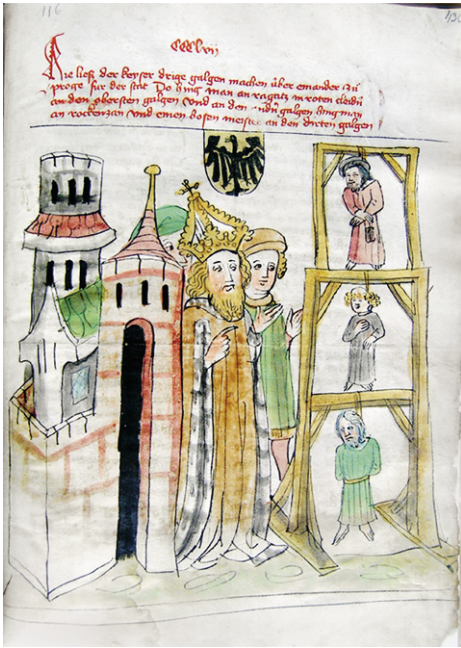 116
Cccclvij
Hie ließ der keyser drige galgen machen über einander zů
proge für der stat Do hing man an ragatz in roten cleidn
an den obersten galgen und an den galgen hing man
an rockenzan und einen bosen meister an den dirten galgen